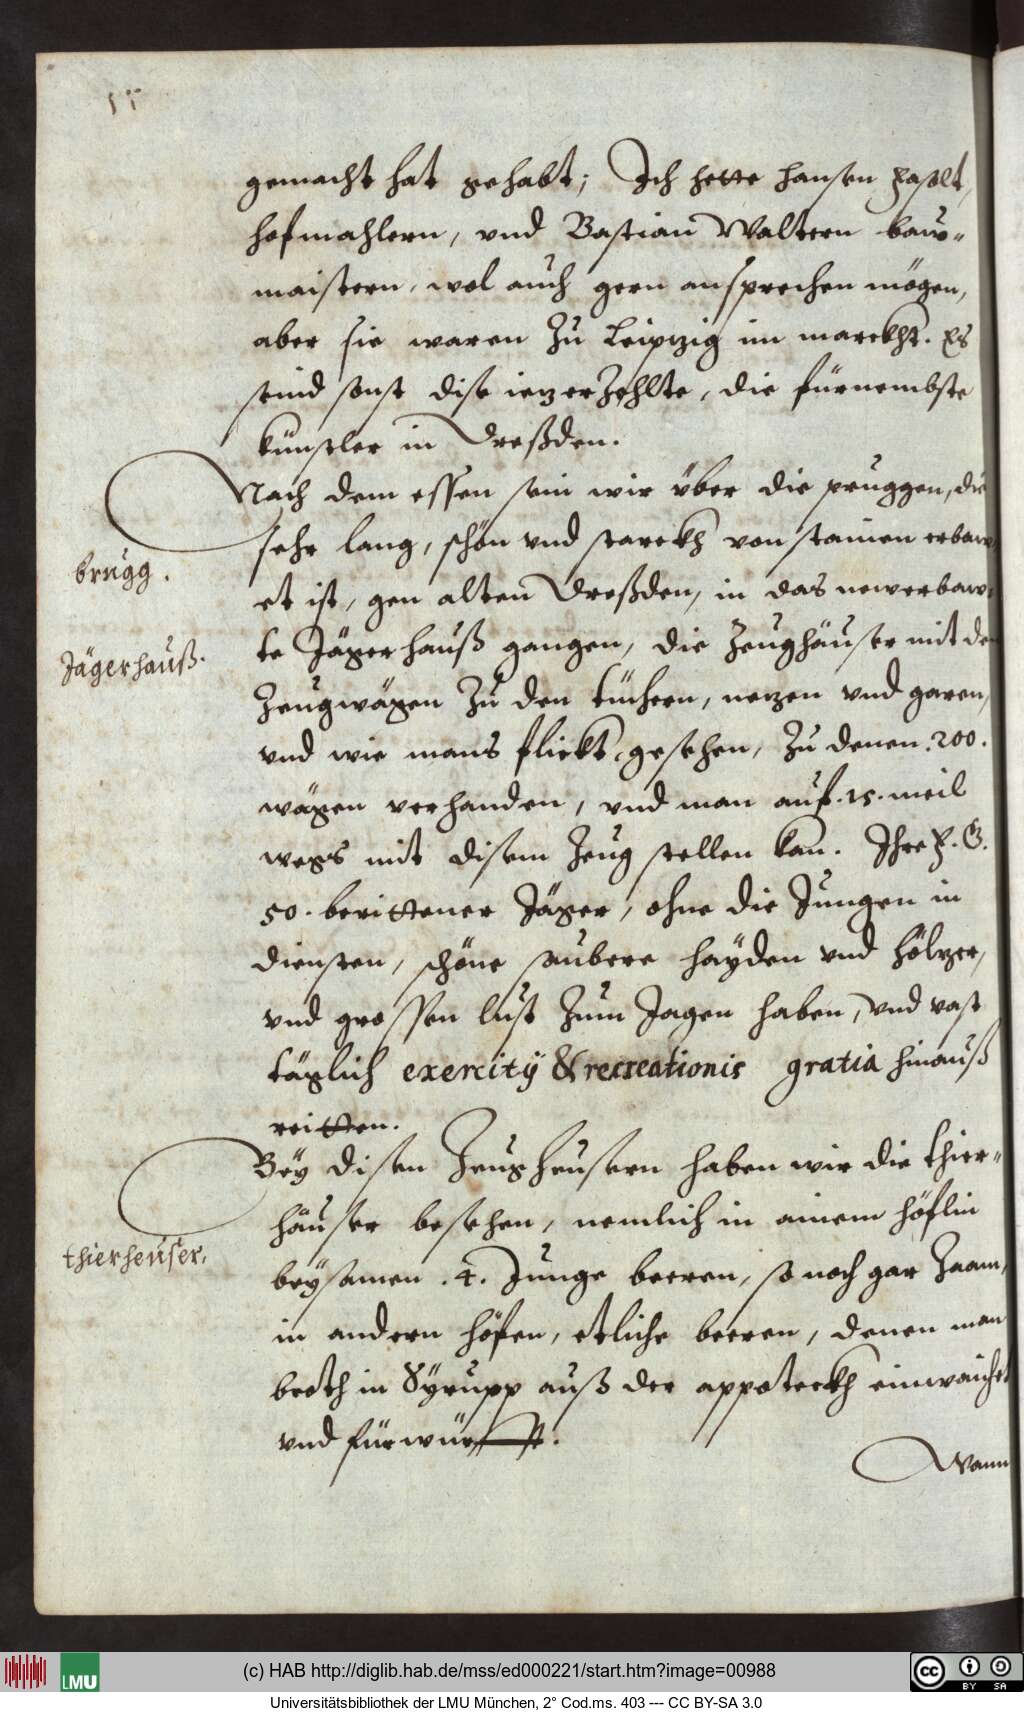 gemacht hat gehabt; Ich hette hansen Fasolt,
hofmahlern, vnd Bastian Waltern baw-
maistern, wol auch gern ansprechen mögen,
aber sie waren Zu Leipzig im marckht. Es
seind sonst dise iezerZehlte, die fürnembste
künstler in Dreßden.
Nach dem essen sein wir über die pruggen, die
brugg.
sehr lang, schön vnd starckh von stainen erbaw
et ist, gen alten Dreßden, in das newerbaw-
Jägerhauß.
te Jägerhauß gangen, die Zeughäuser mit den
Zeugwägen Zu den tüchern, nezen vnd garen,
vnd wie mans flickt, gesehen, Zu denen .200.
wägen verhanden, vnd man auf .15. meil
wegs mit disem Zeug stellen kan. Ihre F. G.
50. berittener Jäger, ohne die Jungen in
diensten, schöne saubere hayden vnd hölzer,
vnd grossen lust Zum Jagen haben, vnd vast
täglich exercitÿ & recreationis gratia hinauß
reitten.
Bey disen Zeugheusern haben wir die thier-
häuser besehen, nemlich in ainem höflin
thierheuser.
beysamen .4. Junge beeren, so noch gar Zaam,
in andern höfen, etliche beeren, denen man
broth in Syrupp auß der appoteckh einwaichet
vnd fürwürfft.
Wann
(c) HAB http://diglib.hab.de/mss/ed000221/start.htm?image=00988
LMU
cc BY SA
Universitätsbibliothek der LMU München, 2° Cod.ms. 403 --- CC BY-SA 3.0